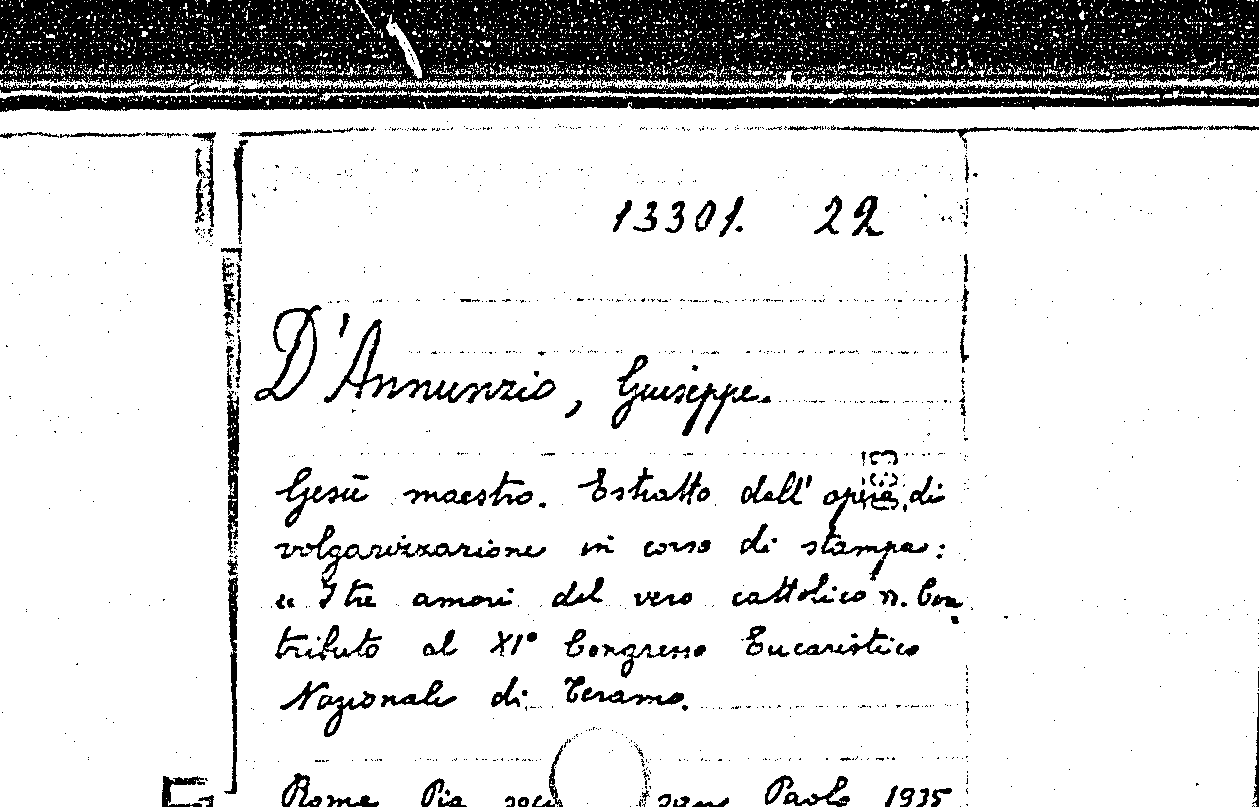 13301. 22
D'Annunzio, Giuseppe.
Gesù maestro. Estratto dell'opera di
volgarizzazione in corso di stampa:
« I tre amori del vero cattolico ». Con
tributo al XI° Congresso Eucaristico
Nazionale di Teramo.
Roma Pia Paolo 1935